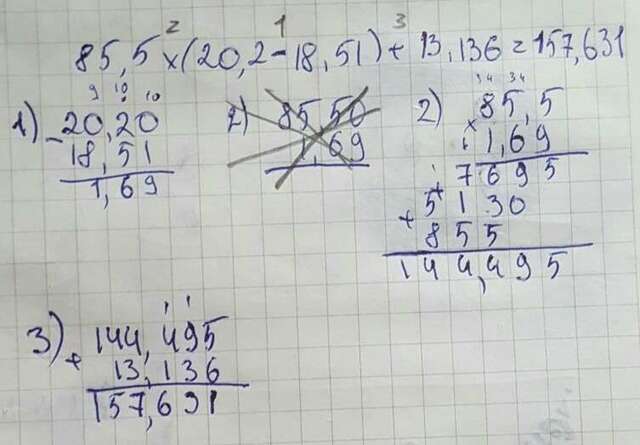 2 1 3
85,5 × (20,2 - 18,51) + 13,136 = 157,631
9 10 10
1) - 20,20
18,51
1,69
2) 85,50
1,69
3 4 3 4
2) × 85,5
1,69
7695
+ 5130
855
144,495
1 1
3) + 144,495
13,136
157,691